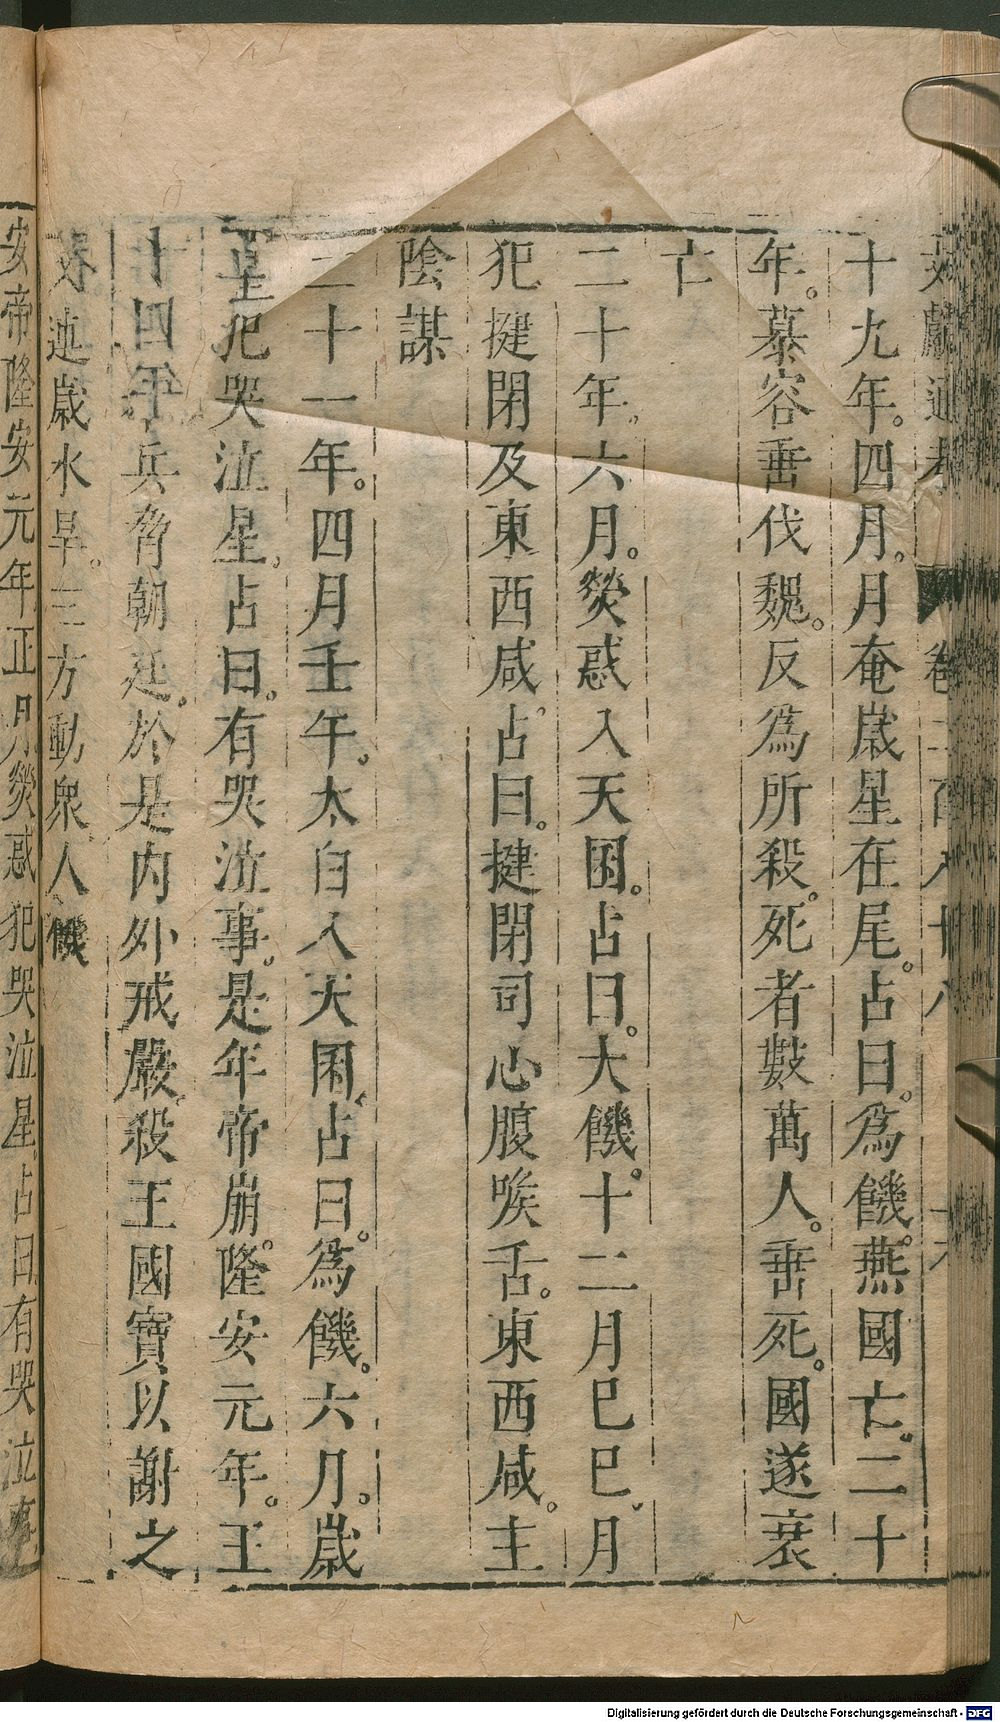 文獻通考 卷二百八十八 十六
十九年。四月。月奄歲星在尾。占曰。爲饑。燕國亡。二十
年。慕容垂伐魏。反爲所殺。死者數萬人。垂死。國遂衰
亡
二十年。六月。熒惑入天囷。占曰。大饑。十二月巳巳。月
犯揵閉及東西咸。占曰。揵閉司心腹喉舌。東西咸。主
陰謀
二十一年。四月壬午。太白入天囷。占曰。爲饑。六月。歲
星犯哭泣星。占曰。有哭泣事。是年帝崩。隆安元年。王
十四年兵脅朝廷。於是內外戒嚴。殺王國寶以謝之
又連歲水旱。三方動衆。人饑
安帝隆安元年正月熒惑犯哭泣星占曰有哭泣事
Digitalisierung gefördert durch die Deutsche Forschungsgemeinschaft - DFG